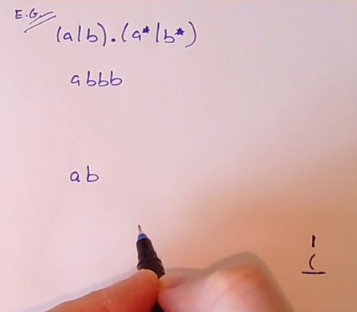 E.G.
(a|b).(a*|b*)
abbb
ab
|
(